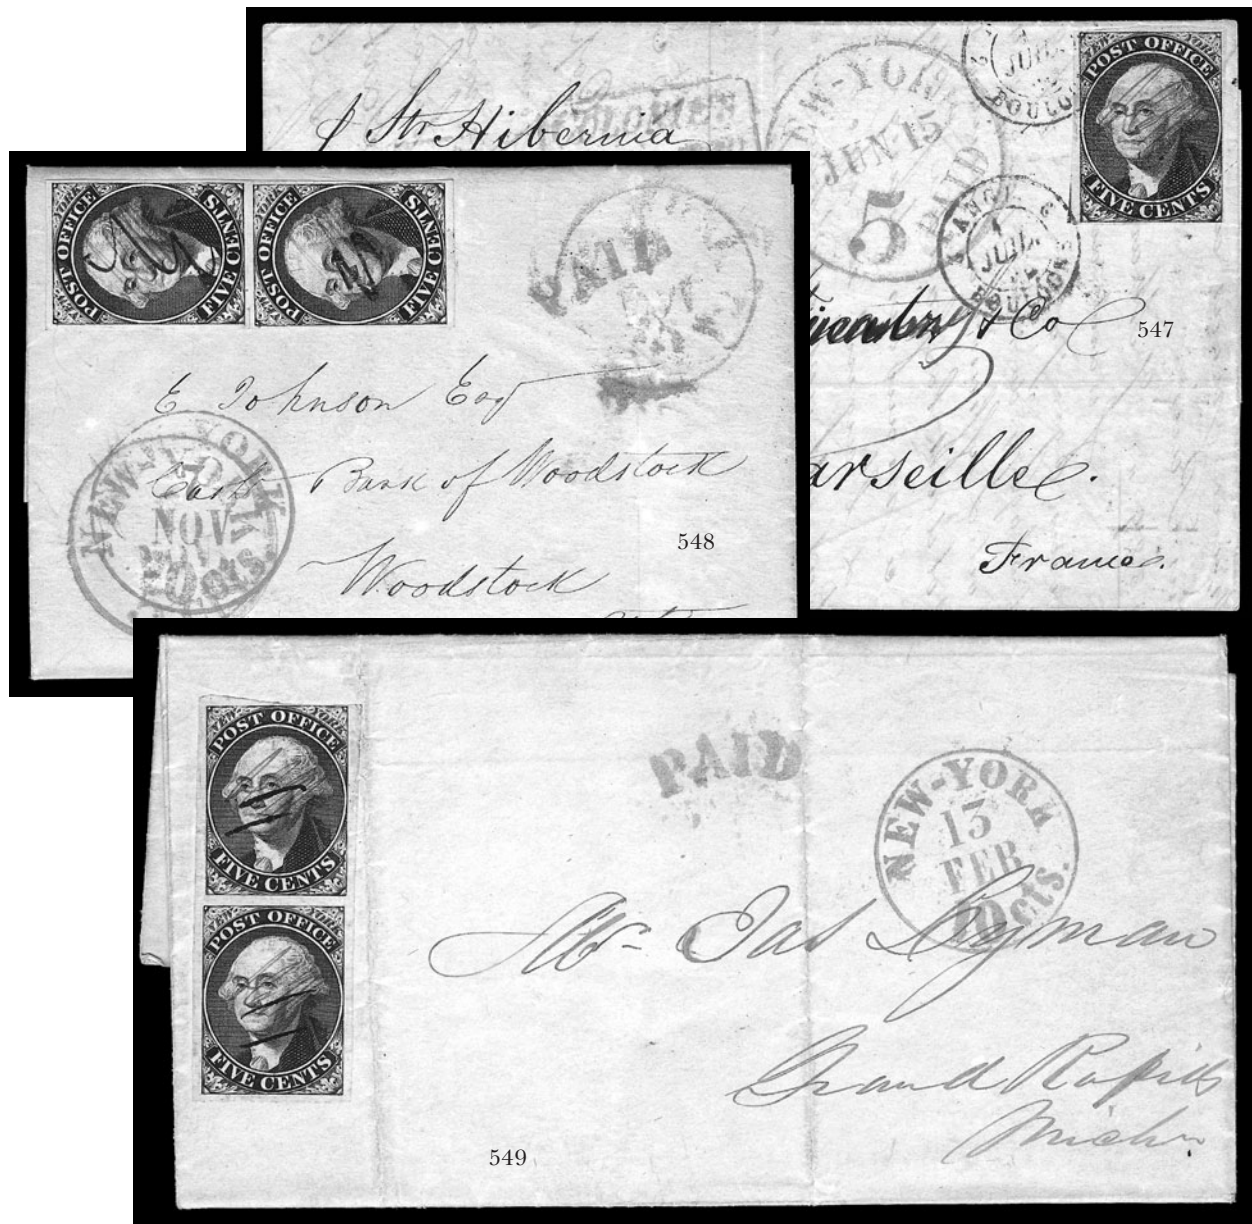 ℘ Str Hibernia
NEW-YORK
JUN 15
5
PAID
JUIL.
BOULOGNE
JUIL.
BOULOGNE
NEW YORK
POST OFFICE
FIVE CENTS
& Co
547
Marseille.
France.
NEW YORK
POST OFFICE
FIVE CENTS
NEW YORK
POST OFFICE
FIVE CENTS
PAID
E Johnson Esq
Cash Bank of Woodstock
Woodstock
NEW-YORK
NOV
10cts.
548
NEW YORK
POST OFFICE
FIVE CENTS
POST OFFICE
FIVE CENTS
PAID
NEW-YORK
13
FEB
10cts.
Mr Jas Lyman
Grand Rapids
Michn
549